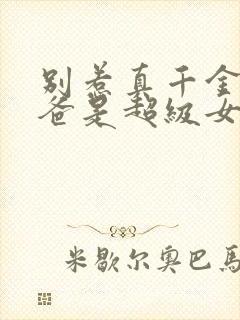 别惹真千金
爸是超级女
米歇尔奥巴马